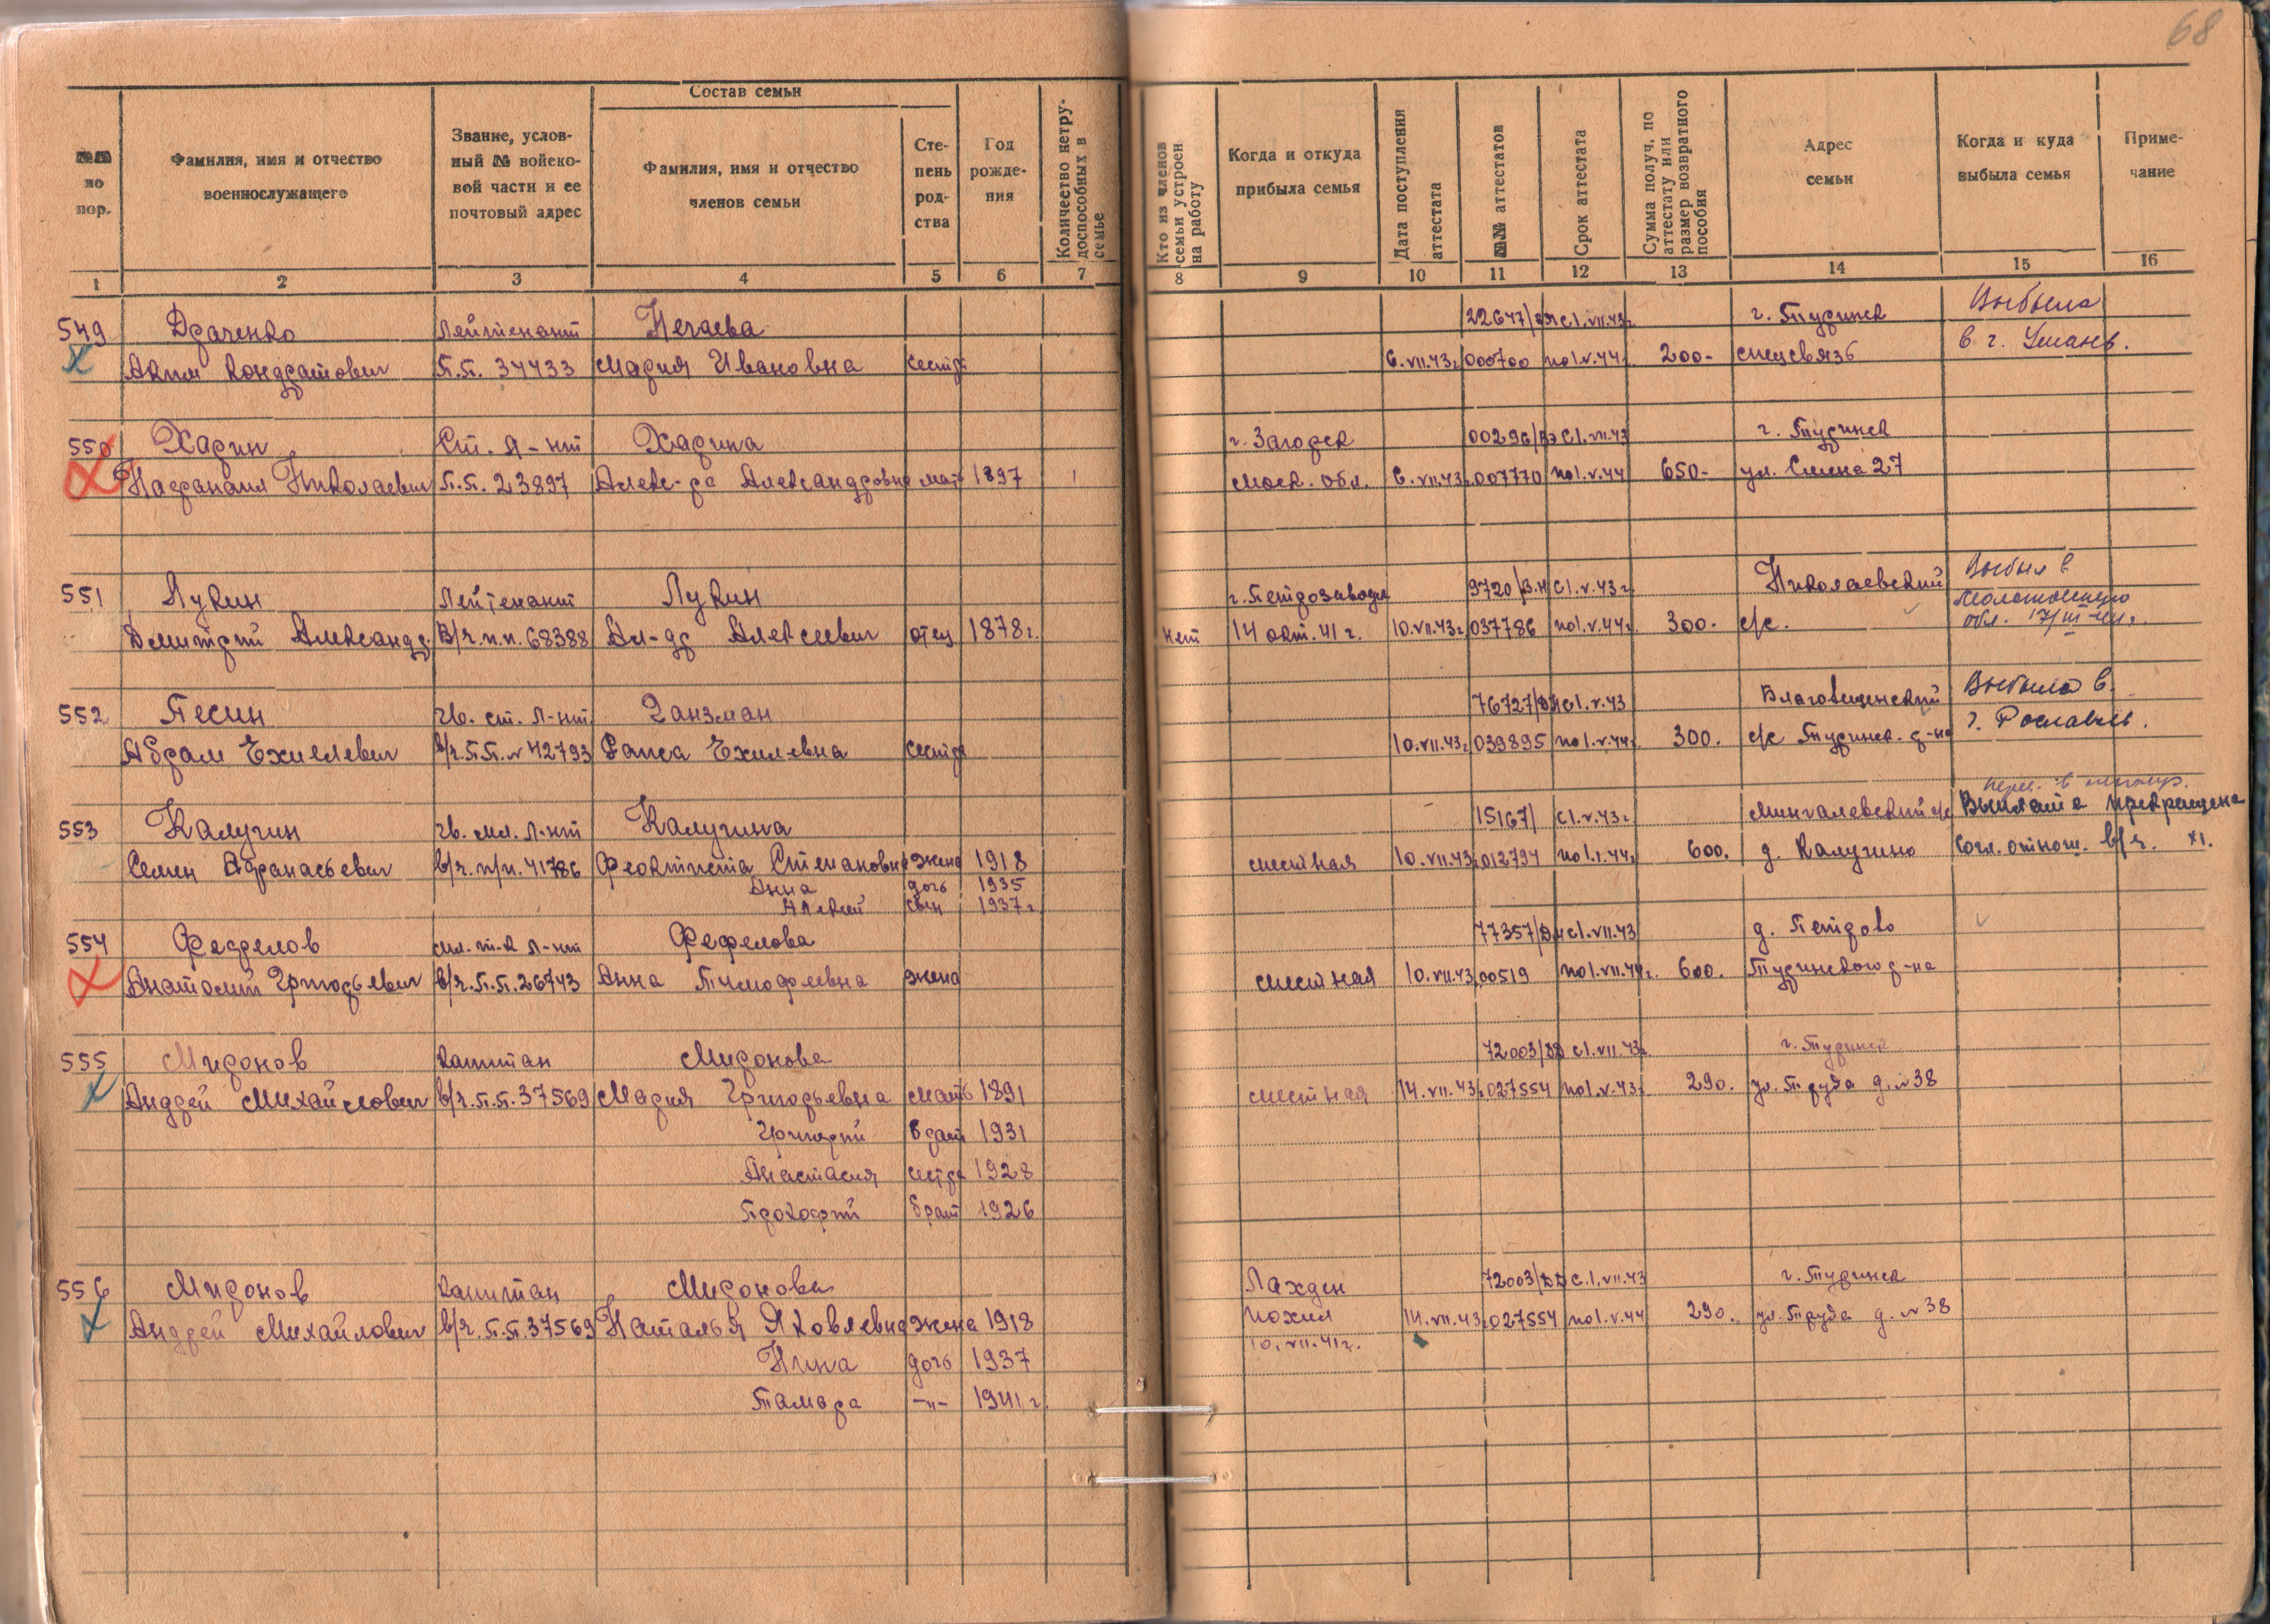 68
№№ по пор.
Фамилия, имя и отчество военнослужащего
Звание, условный № войсковой части и ее почтовый адрес
Состав семьи
Фамилия, имя и отчество членов семьи
Степень родства
Год рождения
Количество нетрудоспособных в семье
Кто из членов семьи устроен на работу
Когда и откуда прибыла семья
Дата поступления аттестата
№№ аттестатов
Срок аттестата
Сумма получ. по аттестату или размер возвратного пособия
Адрес семьи
Когда и куда выбыла семья
Примечание
1 2 3 4 5 6 7 8 9 10 11 12 13 14 15 16
549 Драченко Лейтенант Нечаева 22647/ с 1.VII.43г. г. Туринск Выбыла
Аким Кондратович П.П. 34433 Мария Ивановна сестра 6.VII.43г. 000700 по 1.V.44г. 200- в г. Умань.
550 Харин Ст. Л-нт Харина г. Загорск 00296/ с 1.VII.43 г. Туринск
Николаевич П.П. 23897 Алекс-ра Александровна мать 1897 1 Моск. обл. 6.VII.43г. 007770 по 1.V.44 650- ул. 27
551 Лукин Лейтенант Лукин г. Петрозаводск 9720/В.Н с 1.V.43г. Николаевский Выбыл в
Дмитрий Александр. В/ч.п.п. 68388 Ал-др Алексеевич отец 1878г. нет 14 окт. 41г. 10.VII.43г. 037786 по 1.V.44г. 300. с/с. Молотовскую
обл. 17/III-44г.
552 Песин Гв. ст. Л-нт Ганзман 76727/ с 1.V.43 Благовещенский Выбыла в
Абрам Ехилевич в/ч.П.П.№42793 Раиса Ехилевна сестра 10.VII.43г. 039895 по 1.V.44г. 300. с/с Туринск. р-на г. Рославль.
553 Калугин Гв. мл. Л-нт Калугина 15167/ с 1.V.43г. с/с Выплата прекращена
Семен Афанасьевич в/ч.п/п.41786 Феоктиста Степановна жена 1918 местная 10.VII.43г. 012794 по 1.1.44г. 600. д. Калугино Согл. отнош. в/ч. XI.
Анна дочь 1935
Алексей сын 1937г.
554 Фефелов мл. т-к Л-нт Фефелова 77357/ с 1.VII.43 д. Петрово
Анатолий Григорьевич в/ч.П.П.26743 Анна Тимофеевна жена местная 10.VII.43 00519 по 1.VII.44г. 600. Туринского р-на
555 Миронов Капитан Миронова 72003/ с 1.VII.43г. г. Туринск
Андрей Михайлович в/ч.П.П.37569 Мария Григорьевна мать 1891 местная 14.VII.43г. 027554 по 1.V.43г. 290. ул. Труда д.№38
Григорий брат 1931
Анастасия сестра 1928
Прокофий брат 1926
556 Миронов Капитан Миронова Лахден 72003/ДД с.1.VII.43 г. Туринск
Андрей Михайлович в/ч.П.П.37569 Наталья Яковлевна жена 1918 похия 14.VII.43г. 027554 по 1.V.44 290. ул. Труда д.№38
10.VII.41г.
Нина дочь 1937
Тамара -"- 1941г.